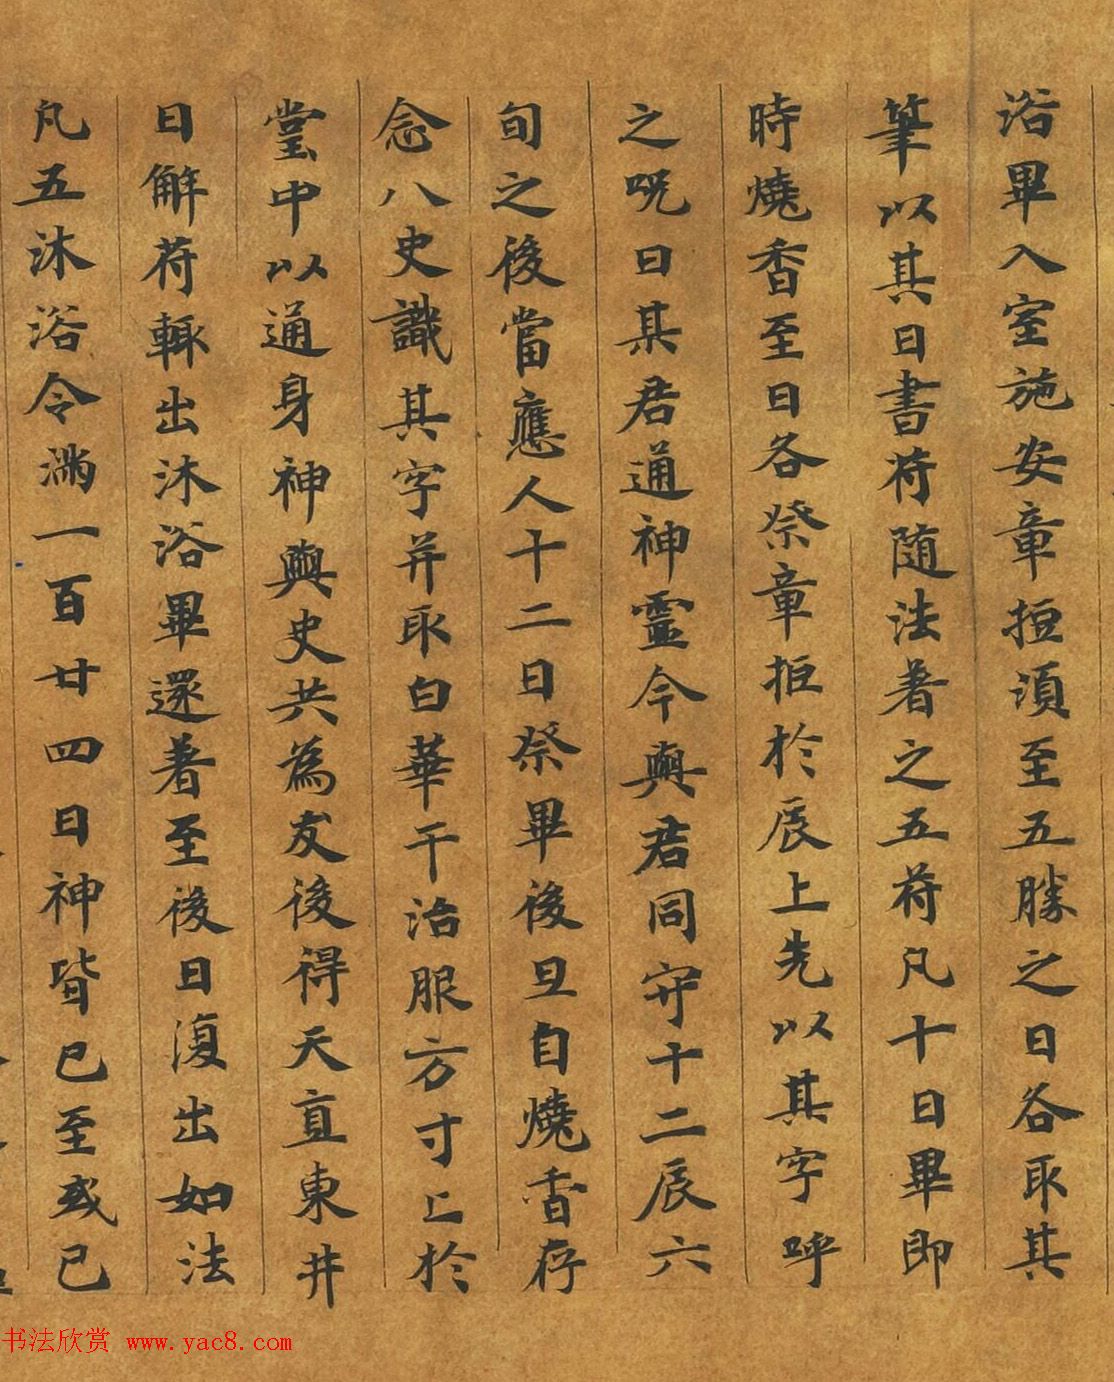 浴畢入室施安章拒須至五勝之日各取其
筆以其日書符随法著之五符凡十日畢即
時燒香至日各祭章拒於辰上先以其字呼
之呪曰某君通神靈今與君同守十二辰六
旬之後當應人十二日祭畢後旦自燒香存
念八史識其字并取白華干治服方寸匕於
堂中以通身神與史共為友後得天直東井
日解符輙出沐浴畢還著至後日復出如法
凡五沐浴令滿一百廿四日神皆已至或已
书法欣赏 www.yac8.com